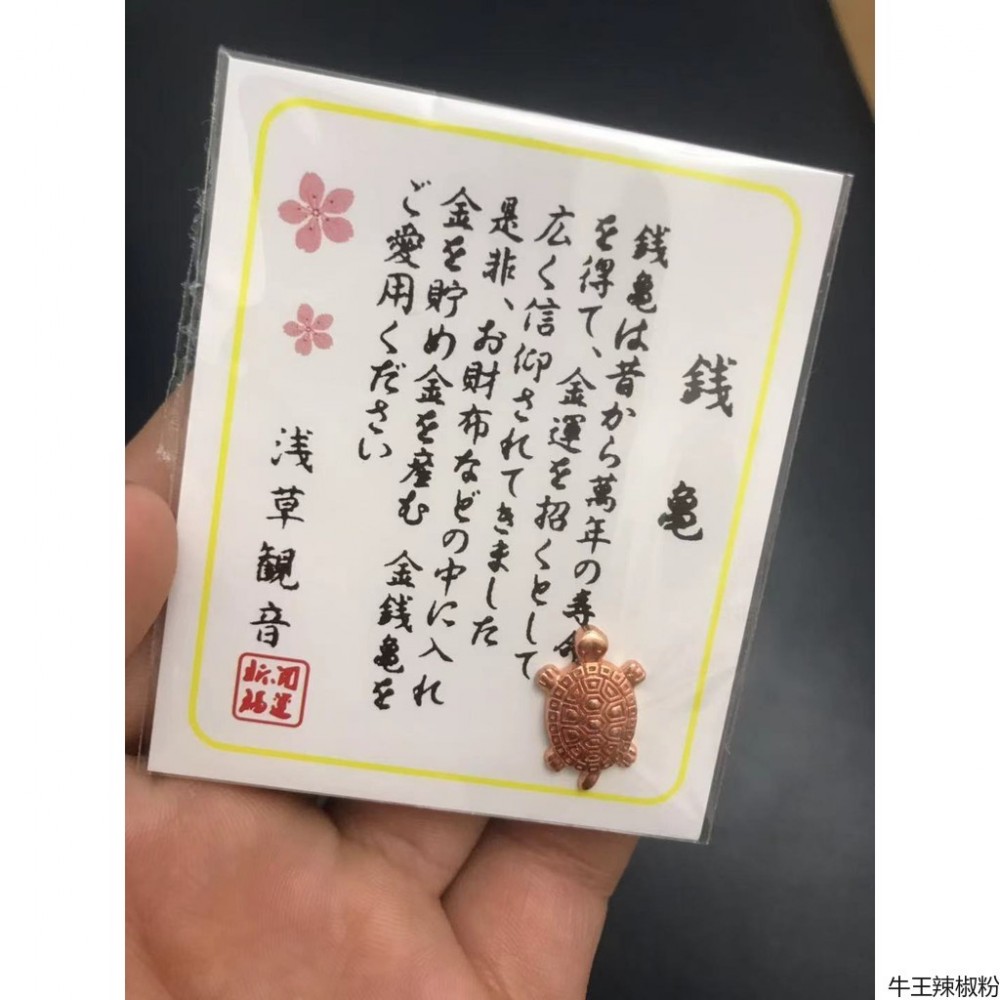 銭亀
銭亀は昔から萬年の寿命
を得て、金運を招くとして
広く信仰されてきました
是非、お財布などの中に入れ
金を貯め金を産む 金銭亀を
ご愛用ください
浅草観音
開運
牛王辣椒粉